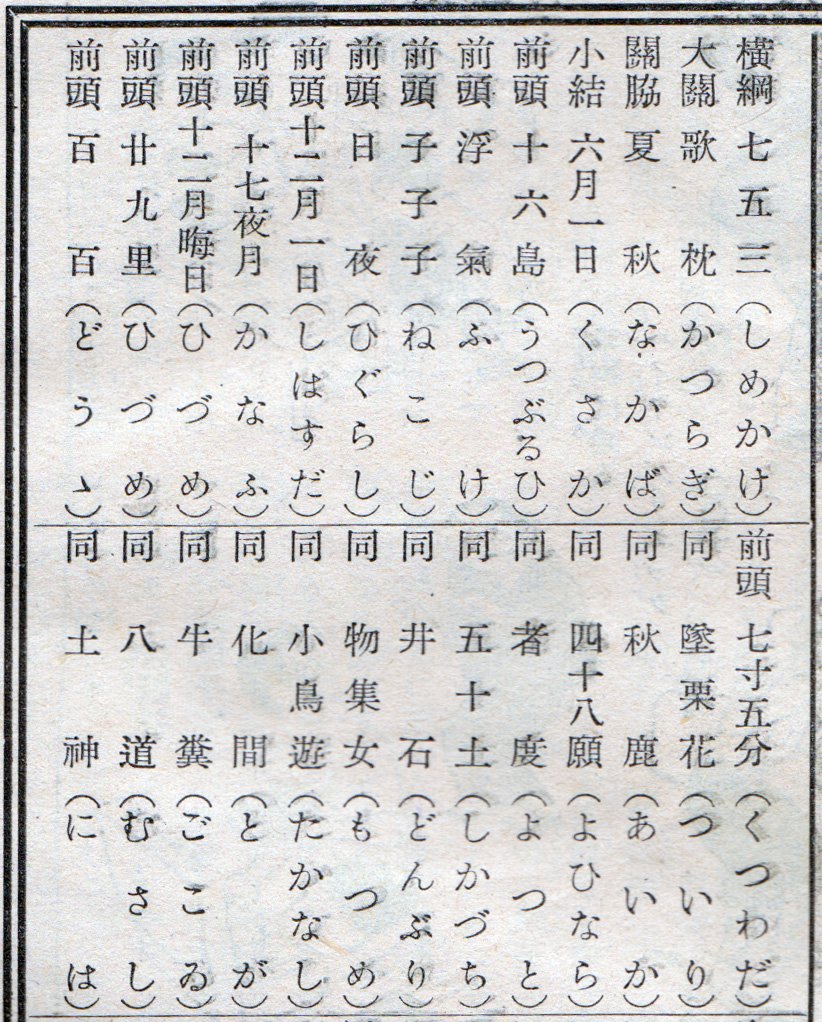 横綱 七五三(しめかけ)
大關 歌枕(かつらぎ)
關脇 夏秋(なかば)
小結 六月一日(くさか)
前頭 十六島(うつぶるひ)
前頭 浮氣(ふけ)
前頭 子子子(ねこじ)
前頭 日夜(ひぐらし)
前頭 十二月一日(しはすだ)
前頭 十七夜月(かなふ)
前頭 十二月晦日(ひづめ)
前頭 廿九里(ひづめ)
前頭 百百(どうゝ)
前頭 七寸五分(くつわだ)
同 墜栗花(ついり)
同 秋鹿(あいか)
同 四十八願(よひなら)
同 者度(よつと)
同 五十土(しかづち)
同 井石(どんぶり)
同 物集女(もつめ)
同 小鳥遊(たかなし)
同 化間(とが)
同 牛糞(ごこゐ)
同 八道(むさし)
同 土神(には)